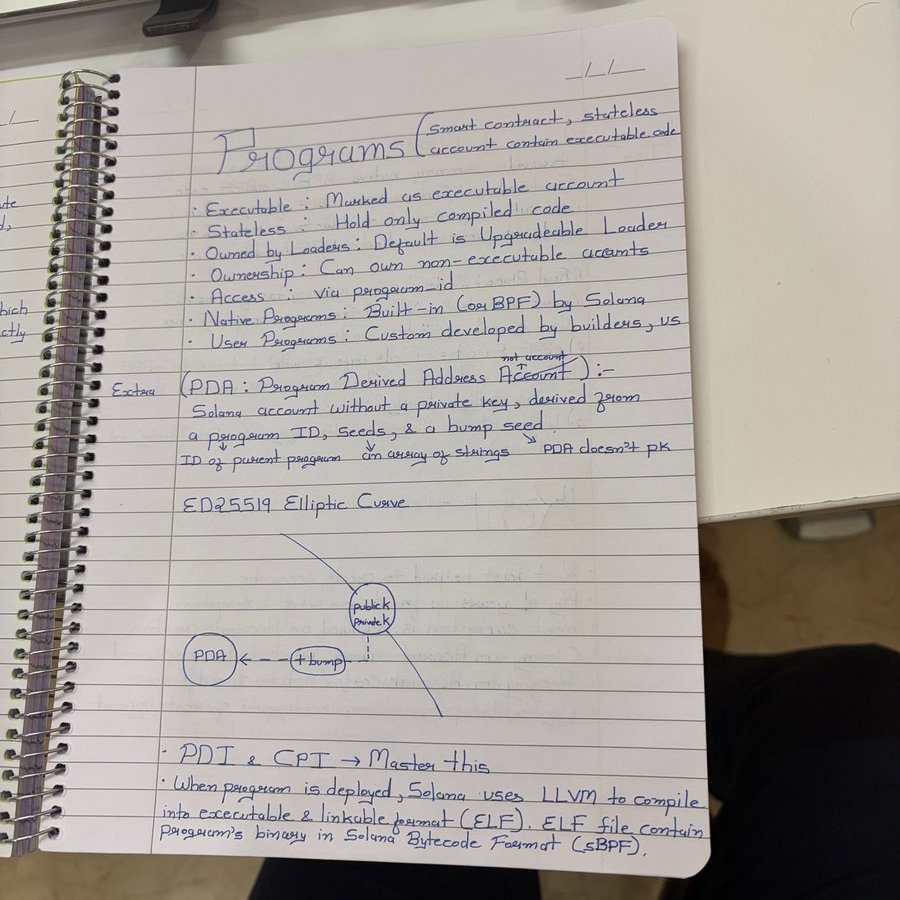 _/_/__
Programs (smart contract, stateless
account contain executable code
· Executable : Marked as executable account
· Stateless : Hold only compiled code
· Owned by Loaders : Default is Upgradeable Loader
· Ownership : Can own non-executable accounts
· Access : via program_id
· Native Programs : Built-in (or BPF) by Solana
· User Programs : Custom developed by builders, us
not account
Extra (PDA : Program Derived Address Account) :-
Solana account without a private key, derived from
a program ID, seeds, & a bump seed.
ID of parent program an array of strings PDA doesn't pk
ED25519 Elliptic Curve
public k
private k
PDA ← + bump
· PDI & CPI → Master this
· When program is deployed, Solana uses LLVM to compile
into executable & linkable format (ELF). ELF file contain
program's binary in Solana Bytecode Format (sBPF).